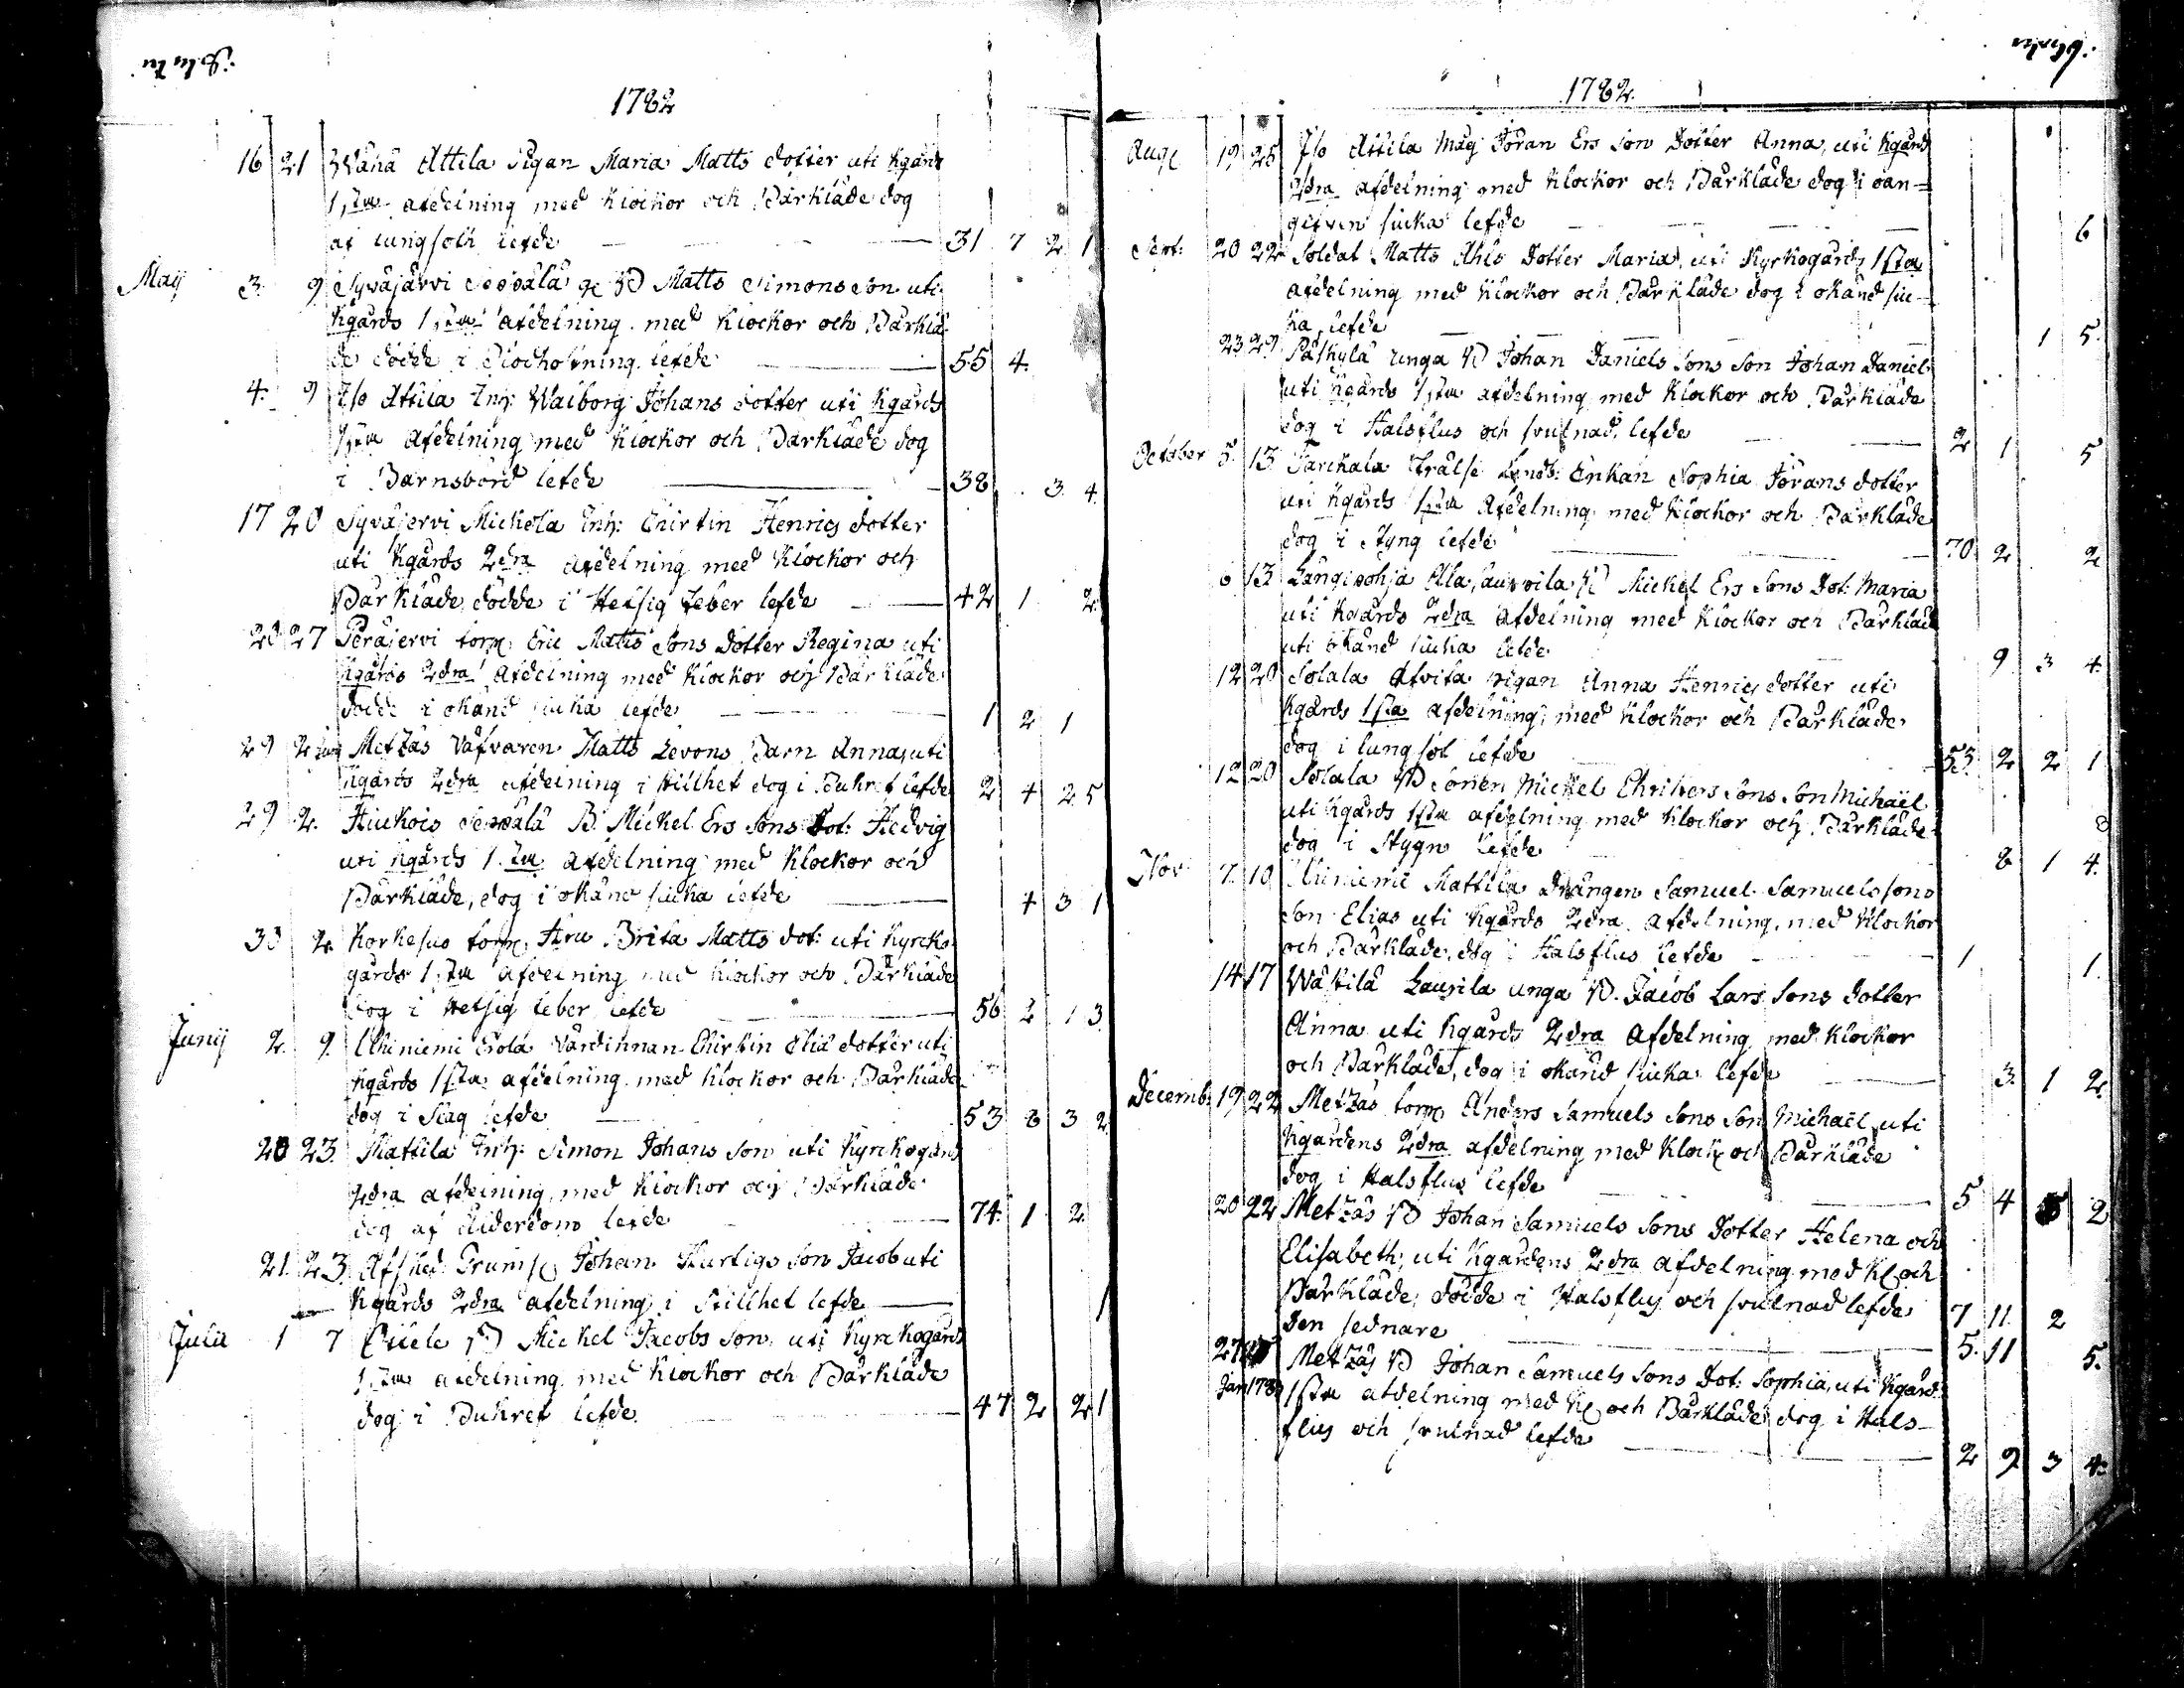 1782
16 21 Wähä Attila Pigan Maria Matts dotter uti Kgårds
1sta afdelning med Klockor och Bårkläde dog
af lungsoth lefde 31 7 2 1
Maij 3. 9 Syväjärvi Seppälä Matts Simons Son uti
Kgårds 1sta afdelning med Klockor och Bårklä-
de dödde i lefde 55 4
4. 9 Iso Attila Inh: Walborg Johans dotter uti Kgårds
1sta afdelning med Klockor och Bårkläde dog
i Barnsbörd lefde 38 3 4.
17 20 Syväjervi Mickola Inh: Chirstin Henrics dotter
uti Kgårds 2dra afdelning med Klockor och
Bårkläde dödde i Hetsig feber lefde 42 1 2
27 Peräjervi torp: Eric Matts Sons Dotter Regina uti
Kgårds 2dra afdelning med Klockor och Bårkläde
dödde i okänd siuka lefde 1 2 1
29 2 Metzäs Matts Levons Barn Anna, uti
Kgårds 2dra afdelning i stillhet dog i Buhref lefde 2 4 2 5
29 2. Seppälä B. Mickel Ers Sons Dot: Hedvig
uti Kgårds 1sta afdelning med Klockor och
Bårkläde, dog i okänd siuka lefde 4 3 1
30 2 Korkesuo torp: Brita Matts dot: uti Kyrcko-
gårds 1sta afdelning med Klockor och Bårkläde
dog i Hetsig feber lefde 56 2 1 3
Junij 2. 9. Uhiniemi Erola Värdinnan Chirstin dotter uti
Kgårds 1sta afdelning med Klockor och Bårkläde
dog i Slag lefde 53 8 3 2
20 23. Mattila Inh: Simon Johans Son uti Kyrckogårds
2dra afdelning med Klockor och Bårkläde
dog af ålderdom lefde 74. 1 2
21. 23 Afsked: Johan Hurtigs Son Jacob uti
Kgårds 2dra afdelning i Stillhet lefde 1
Julii 1 7 Mickel Jacobs Son, uti Kyrckogårds
1sta afdelning med Klockor och Bårkläde
dog i Buhref lefde 47 2 2 1
1782.
Aug: 19 25 Iso Attila Måg Jöran Ers Son Dotter Anna, uti Kgårds
2dra afdelning med Klockor och Bårkläde dog i oan-
gifven siuka lefde 6
Sept: 20 22 Soldat Matts Dotter Maria, uti Kyrkogårds 1sta
afdelning med Klockor och Bårkläde dog i okänd siu-
ka, lefde 1 5.
23 29 Påskylä unga B Johan Daniels Sons Son Johan Daniel
uti Kgårds 1sta afdelning med Klockor och Bårkläde
dog i Halsflus och svulnad, lefde 2 1 5
October 5. 13 Tarckala Frälse Enkan Sophia Jörans dotter
uti Kgårds 1sta Afdelning med Klockor och Bårkläde
dog i Styng lefde 70 2 2
6 13 Långipohja Mickel Ers Sons Dot: Maria
uti Kgårds 2dra Afdelning med Klockor och Bårkläde
uti okänd siuka lefde 9 3 4.
12 20 Solala pigan Anna Henrics dotter uti
Kgårds 1sta afdelning, med Klockor och Bårkläde
dog i lungsot lefde 55 2 2 1
12 20 Solala B Sonen Mickel Christers Sons Son Michaël
uti Kgårds 1sta afdelning med Klockor och Bårkläde
dog i Stygn lefde 8 1 4.
Nov: 7. 10 Uhiniemi Mattila Drängen Samuel Samuelssons
Son Elias uti Kgårds 2dra afdelning, med Klockor
och Bårkläde, dog i Halsflus lefde 1 1.
14 17 Wäkilä Laurila unga B. Jacob Lars Sons Dotter
Anna uti Kgårds 2dra Afdelning med Klockor
och Bårkläde, dog i okänd siuka lefde 3. 1 2.
Decemb: 19 22 Metzäs torp: Anders Samuels Sons Son Michaël, uti
Kgårdens 2dra afdelning med Klock: och Bårkläde
dog i Halsflus lefde 5 4 2
20 22 Metzäs B Johan Samuels Sons Dotter Helena och
Elisabeth, uti Kgårdens 2dra afdelning med Kl: och
Bårkläde, dödde i Halsflus och svulnad lefde 7 11. 2
Den sednare 5. 11 5.
27 Metzäs B Johan Samuels Sons Dot: Sophia, uti Kgård:
1sta afdelning med Kl: och Bårkläde dog i Hals-
flus och svulnad lefde 2 9 3 4.